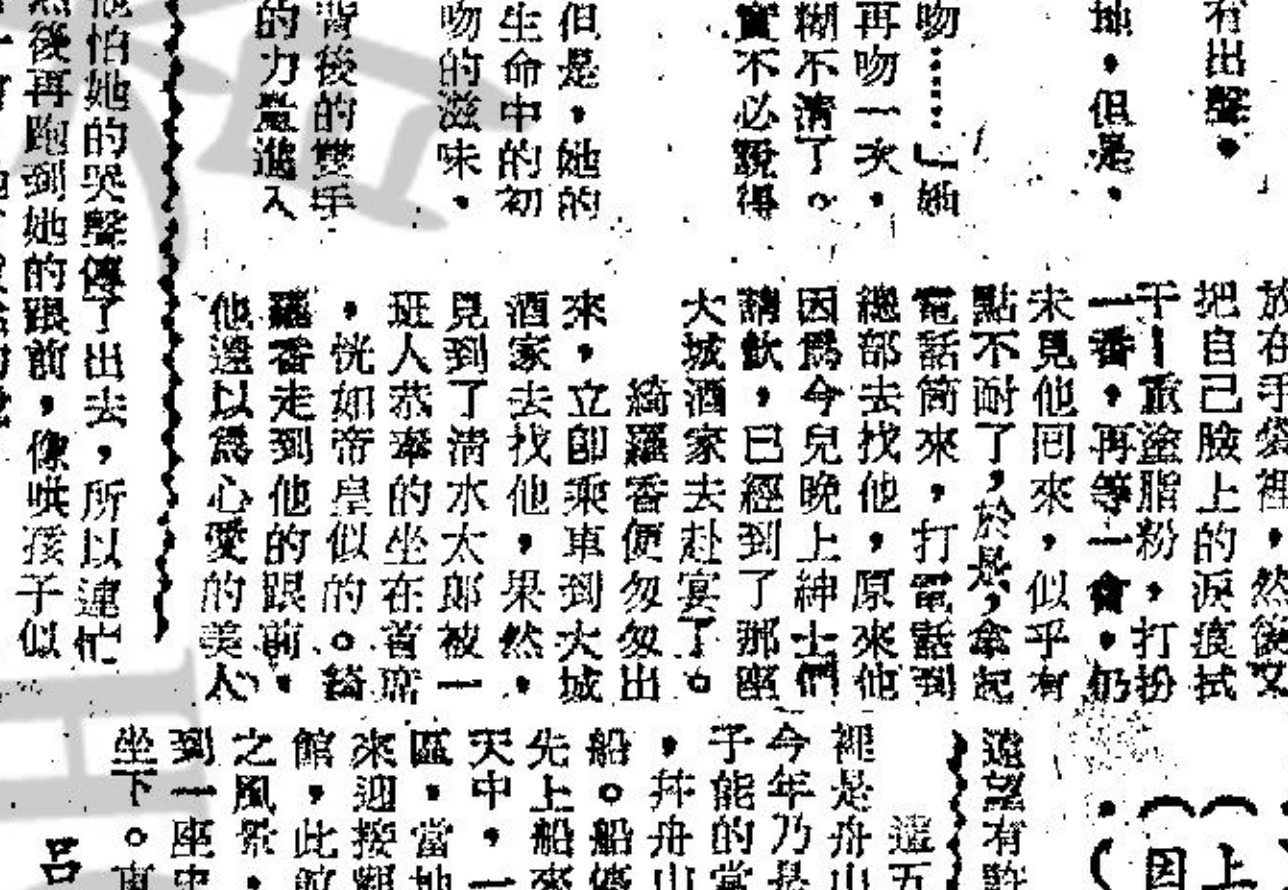 有出聲。
地，但是，
吻……」她
再吻一次，
糊不清了。
實不必說得
但是，她的
生命中的初
吻的滋味，
背後的雙手
的力量進入
怕她的哭聲傳了出去，所以連忙
後再跑到她的跟前，像哄孩子似
放在手袋裡，然後又
把自己臉上的淚痕拭
干—重塗脂粉，打扮
一番，再等一會，仍
未見他回來，似乎有
點不耐了，於是，拿起
電話筒來，打電話到
總部去找他，原來他
因爲今兒晚上紳士們
請飲，已經到了那座
大城酒家去赴宴了。
綺羅香便匆匆出
來，立卽乘車到大城
酒家去找他，果然，
見到了清水太郎被一
班人恭奉的坐在首席
，恍如帝皇似的。綺
羅香走到他的跟前，
他還以爲心愛的美人
（上
（因
遠望有許
這五
裡是舟山
今年乃是
子能的當
，幷舟山
船。船停
先上船來
天中，一
區，當地
來迎接觀
館，此館
之風景，
到一座史
坐下。
呂